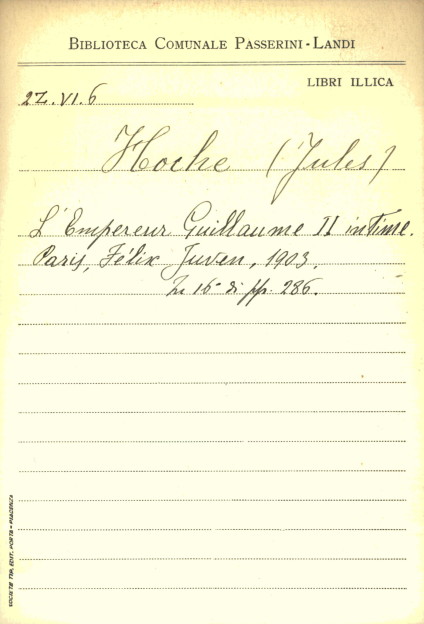 BIBLIOTECA COMUNALE PASSERINI-LANDI
LIBRI ILLICA
2Z.VI.6
Hoche (Jules)
L'Empereur Guillaume II intime.
Paris, Félix Juven, 1903.
In 16° di pp. 286.
SOCIETÀ TIP. EDIT. PORTA - PIACENZA